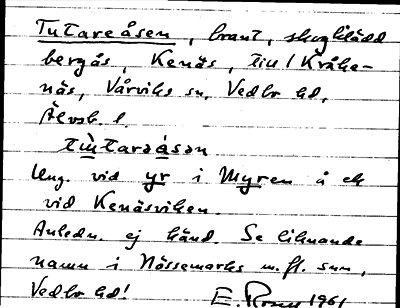 Tutareåsen, brant, skogklädd
bergås, Kenäs, till Kråke-
näs, Vårviks sn, Vedbo hd,
Älvsb. l.
Ung. vid yr i Myren å ek
vid Kenäsviken.
Anledn. ej känd. Se liknande
namn i Nössemarks m.fl. snn,
Vedbo hd!
E. 1961